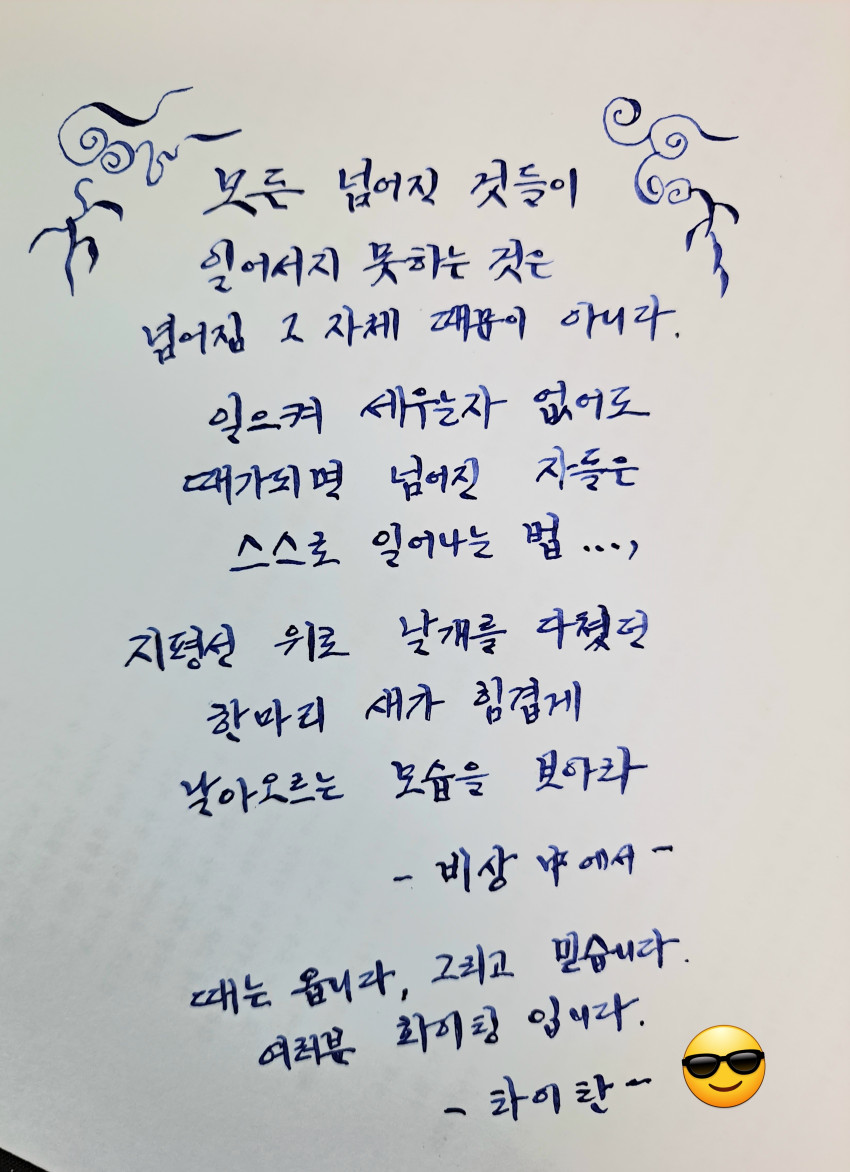 모든 넘어진 것들이
일어서지 못하는 것은
넘어짐 그 자체 때문이 아니다.
일으켜 세우는자 없어도
때가되면 넘어진 자들은
스스로 일어나는 법 ...,
지평선 위로 날개를 다쳤던
한마리 새가 힘겹게
날아오르는 모습을 보아라
- 비상 中에서 -
때는 옵니다, 그리고 믿습니다.
여러분 화이팅 입니다.
- 타이탄 -